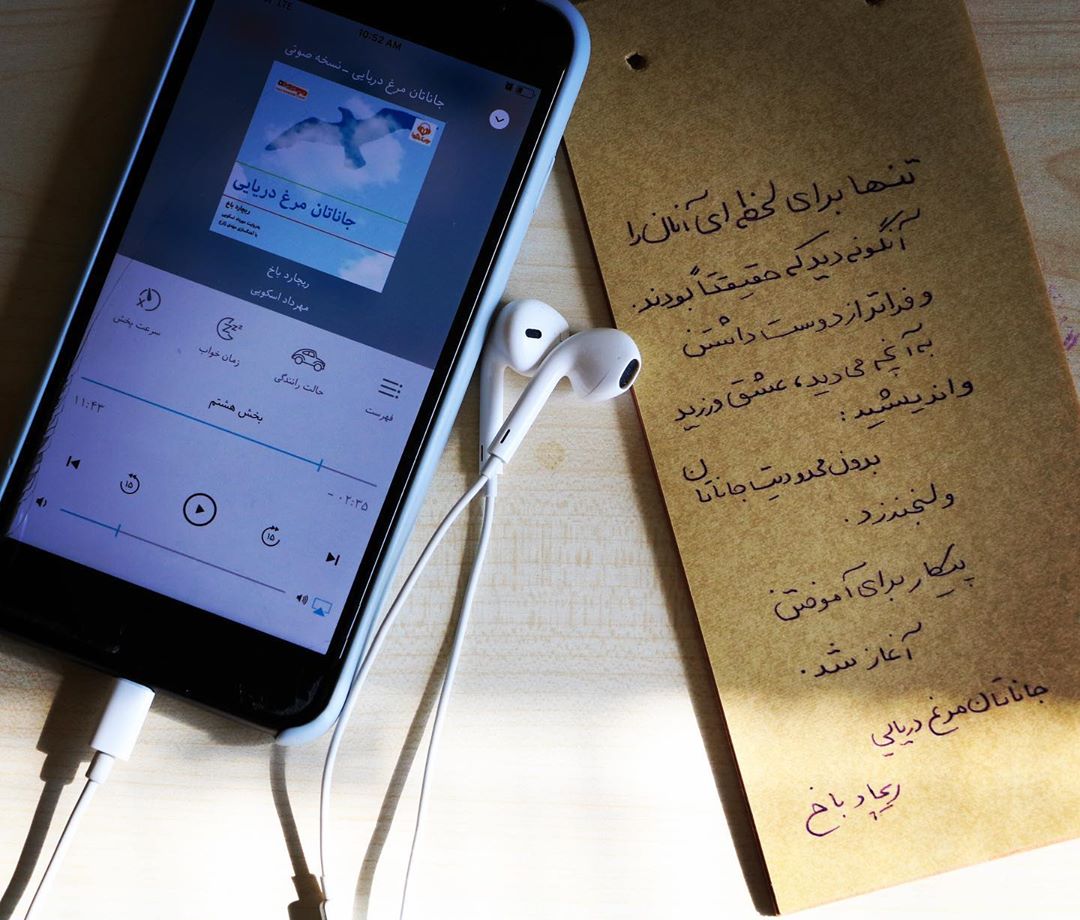 LTE
10:52 AM
جاناتان مرغ دریایی - نسخه صوتی
جاناتان مرغ دریایی
ریچارد باخ
ریچارد باخ
مهرداد اسکویی
سرعت پخش
زمان خواب
حالت رانندگی
فهرست
بخش هشتم
۱۱:۴۳
- ۰۲:۳۵
۱۵
۱۵
تنها برای لحظه ای آنان را
آنگونه دید که حقیقتاً بودند.
و فراتر از دوست داشتن
به آنچه می دید، عشق ورزید
و اندیشید:
بدون محدودیت جاناتان
ولنجندزد.
پیکار برای آموختن
آغاز شد.
جاناتان مرغ دریایی
ریچارد باخ